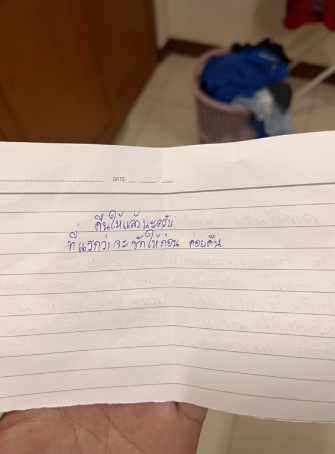 DATE
คืนให้แล้วนะครับ
ที่แรกว่าจะ ซักให้ก่อน ค่อยคืน